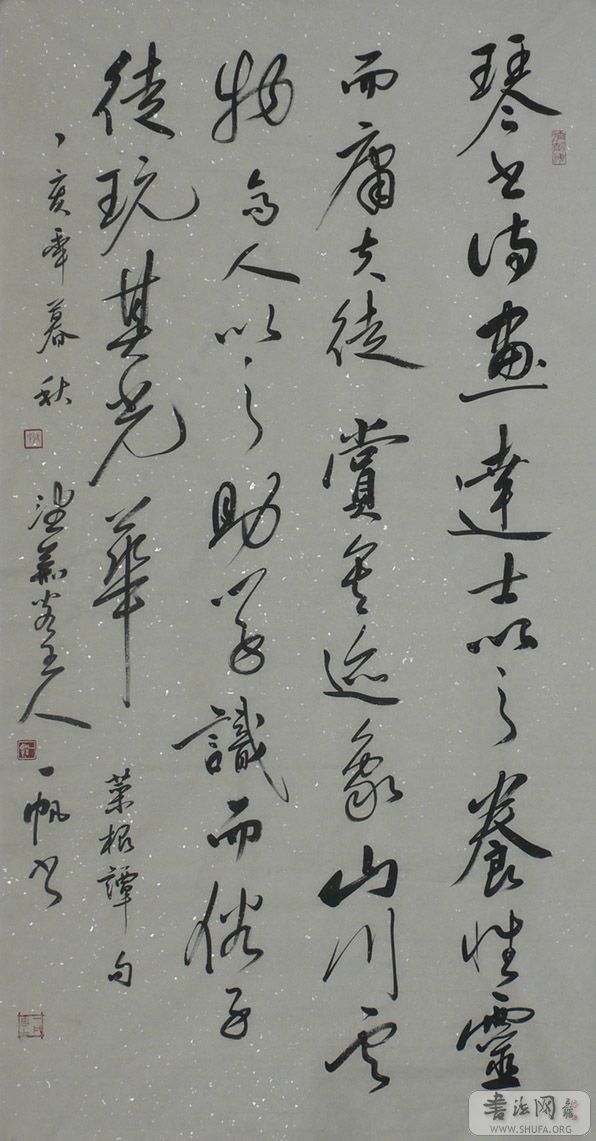 琴书诗畫達士以之養性靈
而庸夫徒賞其迹象山川云
物高人以之助学識而俗子
徒玩其光華 菜根譚句
丁亥年暮秋 主人 一帆书
書法网
WWW.SHUFA.ORG